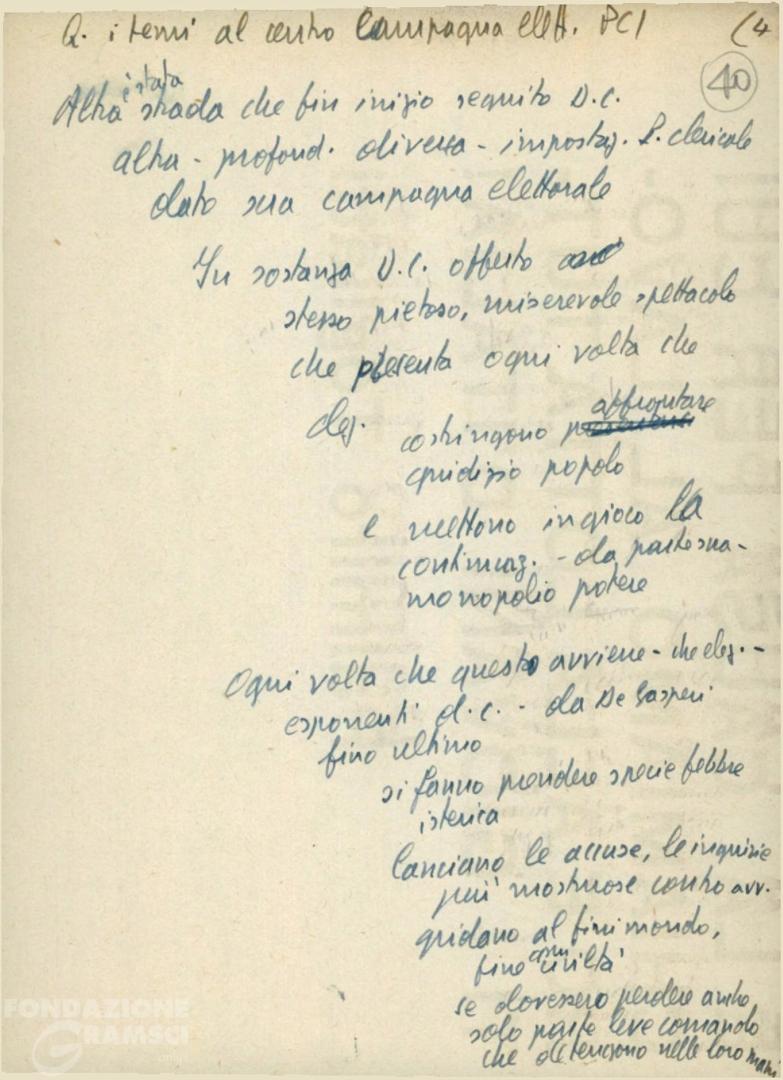 Q. i temi al centro Campagna elett. PCI (4
40
Altra è stata strada che fin inizio seguito D.C.
altra - profond. diversa - impostaz. P. clericale
dato sua campagna elettorale
In sostanza D.C. offerto
stesso pietoso, miserevole spettacolo
che presenta ogni volta che
elez. costringono affrontare
giudizio popolo
e mettono in gioco la
continuaz. - da parte sua -
monopolio potere
Ogni volta che questo avviene - che elez. -
esponenti d.c. - da De Gasperi
fino ultimo
si fanno prendere specie febbre
isterica
lanciano le accuse, le ingiurie
più mostruose contro avv.
gridano al finimondo,
fine civiltà
se dovessero perdere anche
solo parte leve comando
che detengono nelle loro mani
FONDAZIONE
GRAMSCI